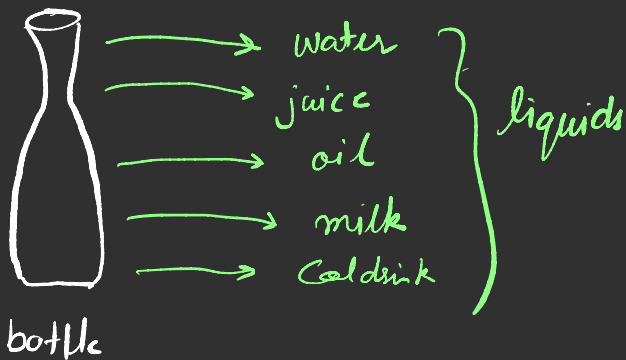 water
juice
oil
milk
Coldrink
liquids
bottle